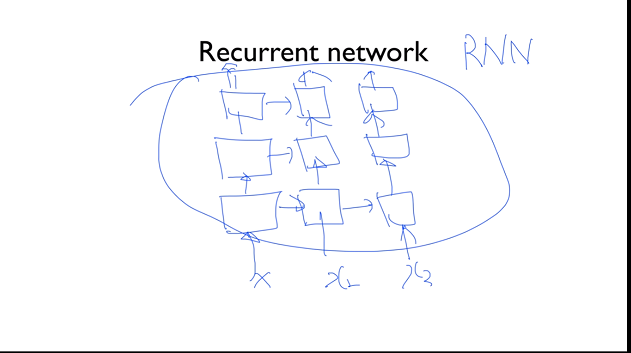 Recurrent network RNN
x x₁ x₂